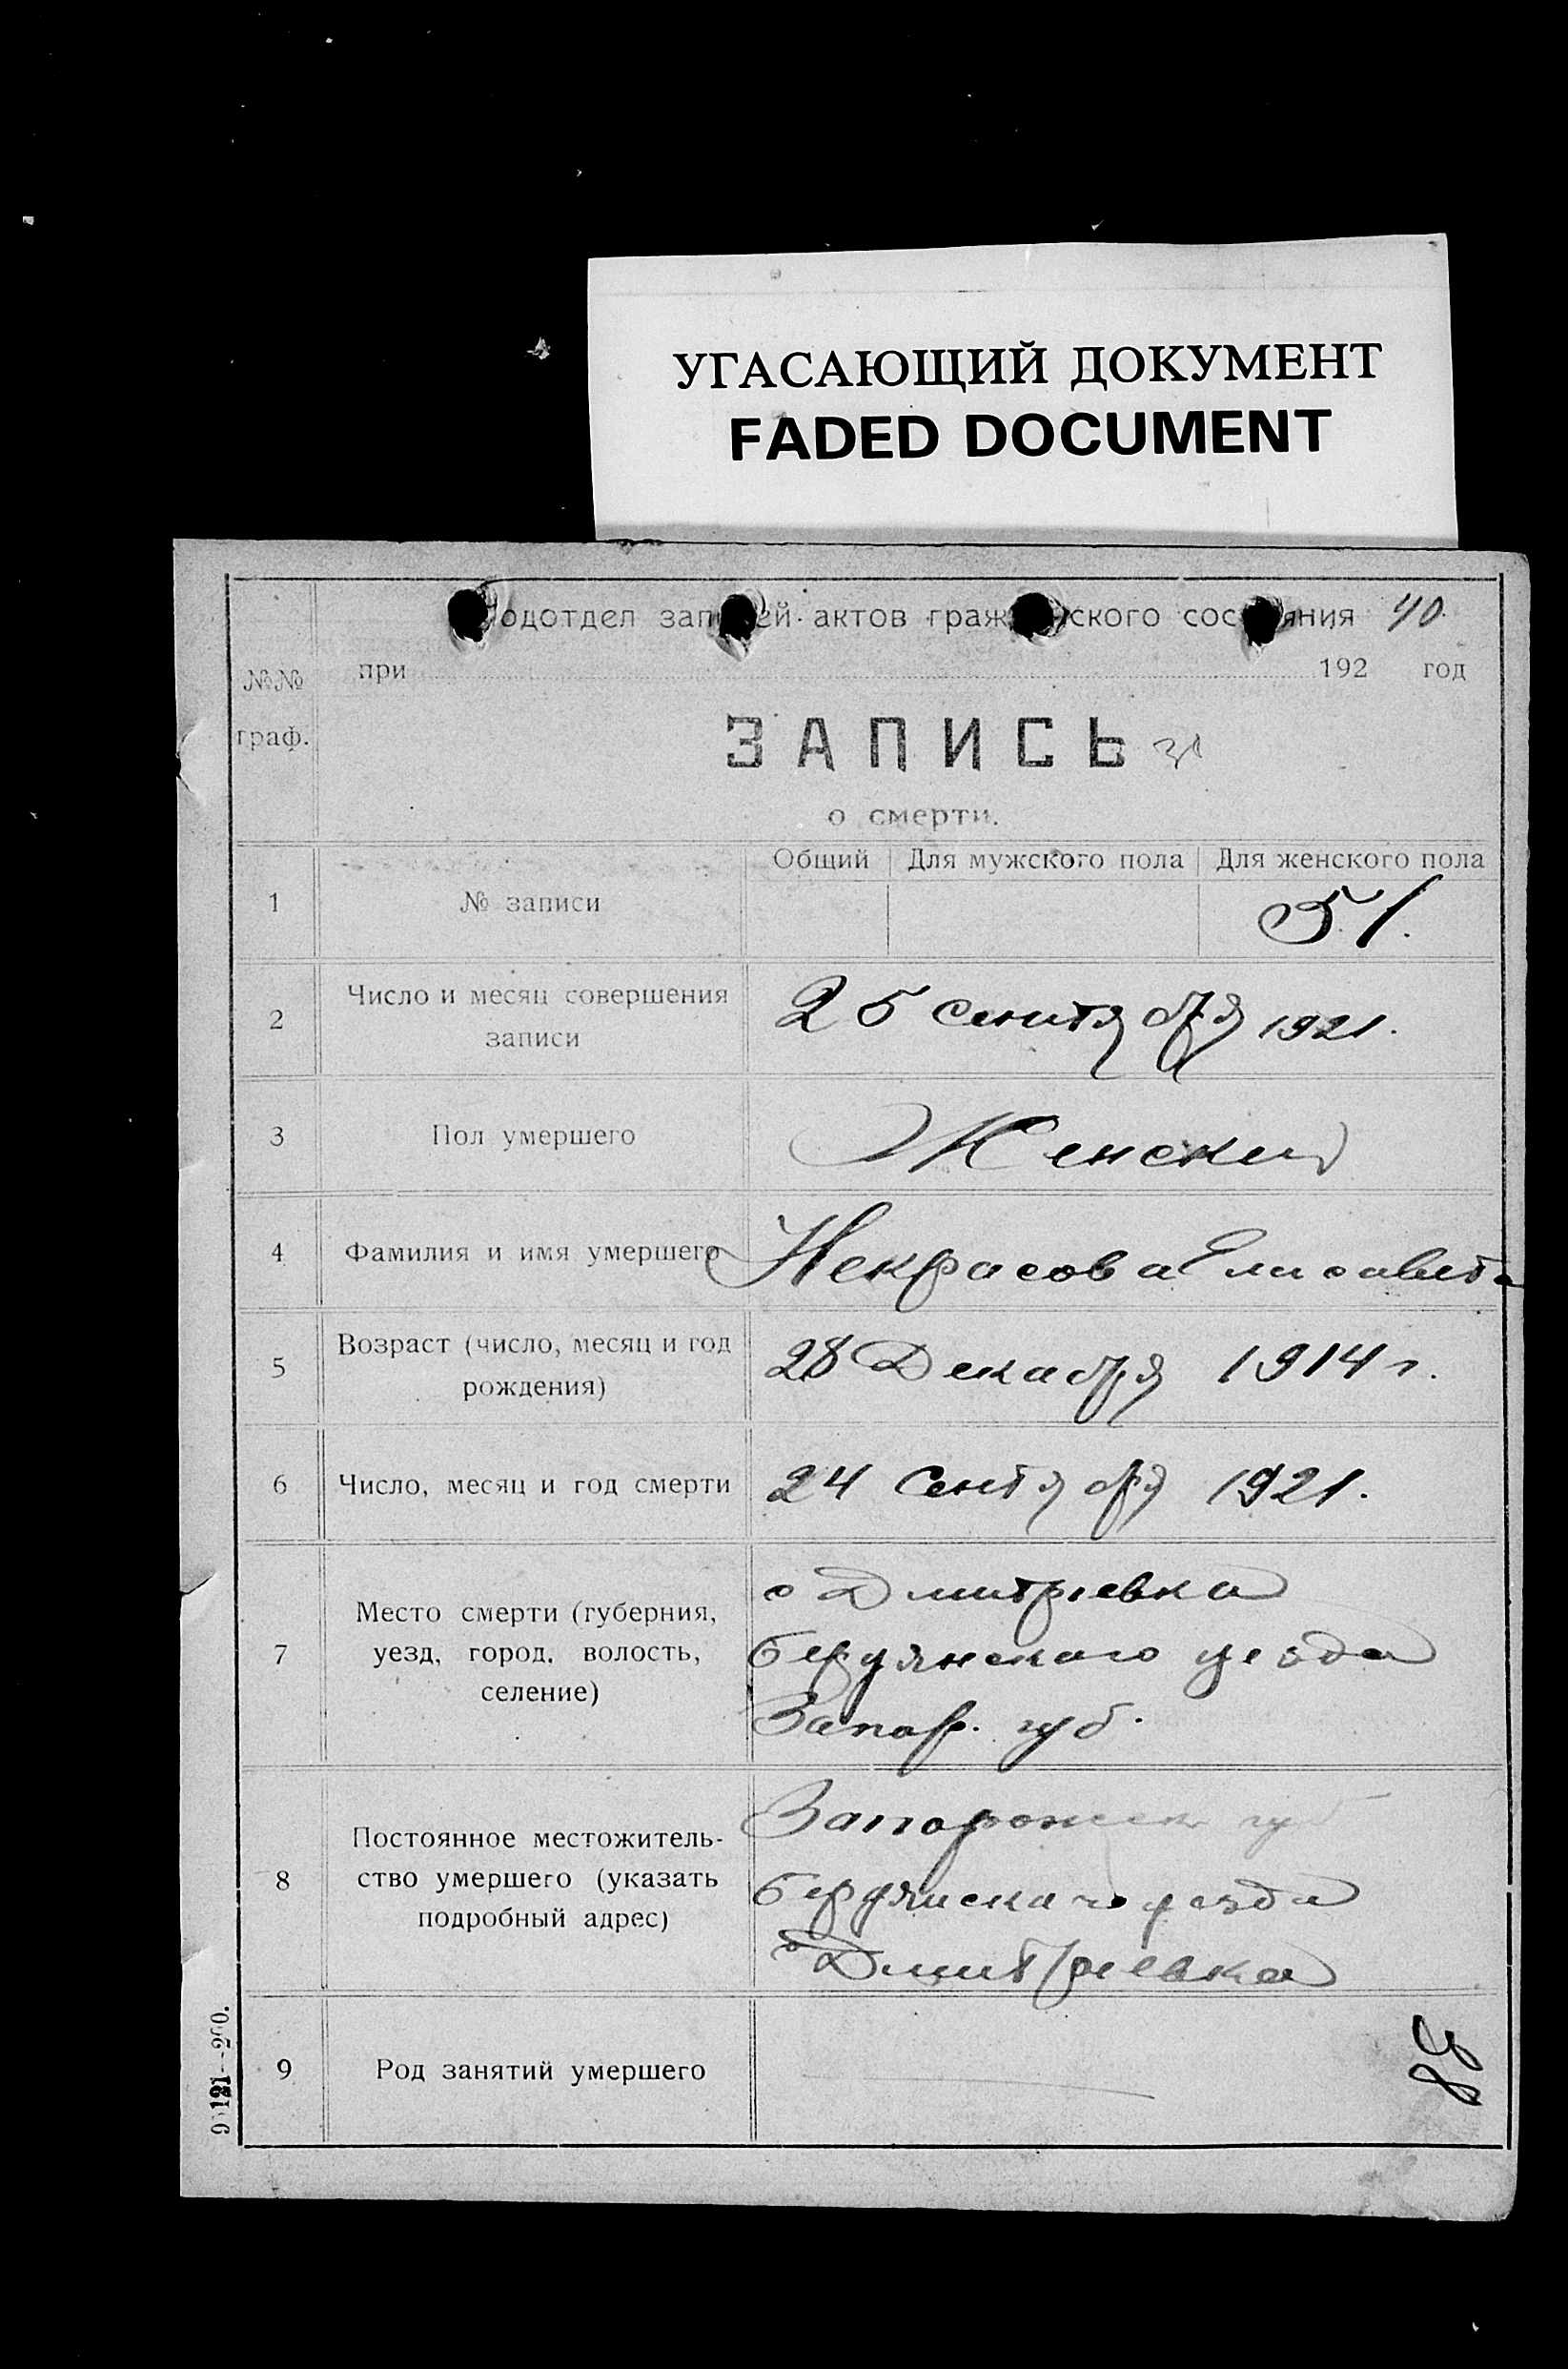 УГАСАЮЩИЙ ДОКУМЕНТ
FADED DOCUMENT
одотдел зап ей актов граж нского сос яния 40.
№№ граф.
при 192 год
ЗАПИСЬ
о смерти.
Общий Для мужского пола Для женского пола
1 № записи 51.
2 Число и месяц совершения
записи
25 сентября 1921.
3 Пол умершего Женский
4 Фамилия и имя умершего Некрасова Елисавета
5 Возраст (число, месяц и год
рождения)
28 Декабря 1914 г.
6 Число, месяц и год смерти 24 Сентября 1921.
7 Место смерти (губерния,
уезд, город, волость,
селение)
с Дмитріевка
бердянскаго уезда
Запор. губ.
8 Постоянное местожитель-
ство умершего (указать
подробный адрес)
Запорожск губ
бердянскаго уезда
с Дмитріевка
9 Род занятий умершего
38